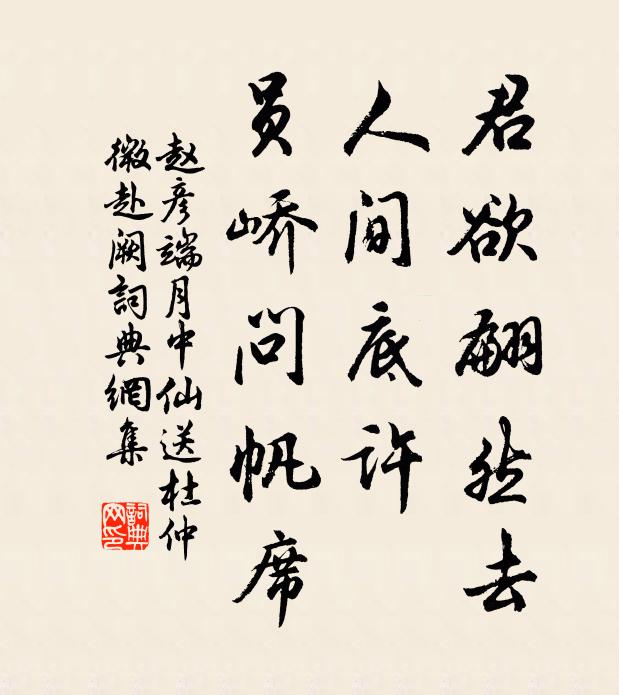 君欲翩然去
人间底许
员峤问帆席
赵彦端月中仙送杜仲
微赴阙词典網集
詞典
网印